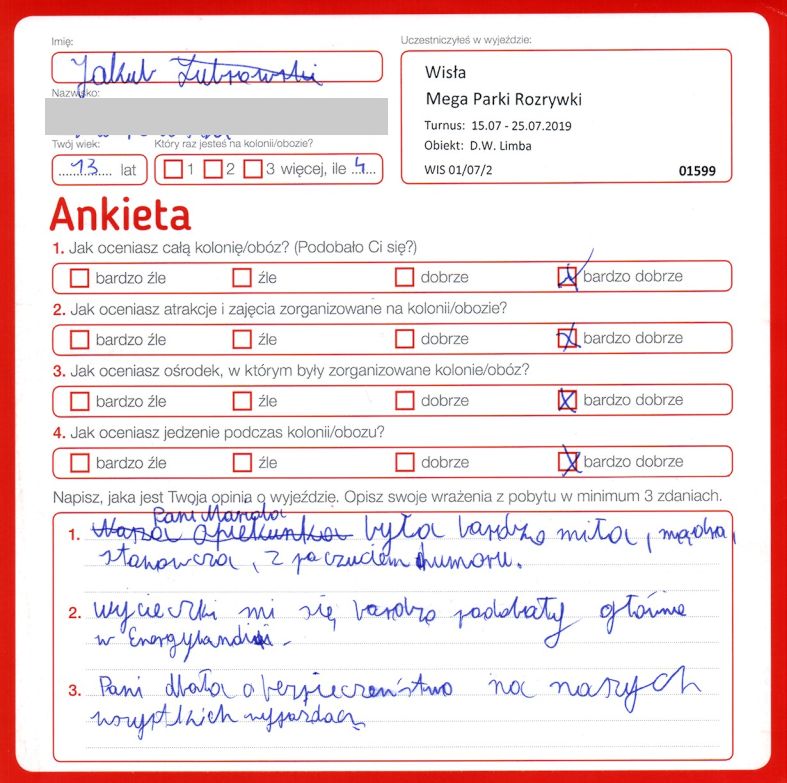 Imię:
Jakub Żubrowski
Nazwisko:
Twój wiek:
13 lat
Który raz jesteś na kolonii/obozie?
1 2 3 więcej, ile 4
Uczestniczyłeś w wyjeździe:
Wisła
Mega Parki Rozrywki
Turnus: 15.07 - 25.07.2019
Obiekt: D.W. Limba
WIS 01/07/2 01599
Ankieta
1. Jak oceniasz całą kolonię/obóz? (Podobało Ci się?)
bardzo źle źle dobrze bardzo dobrze
2. Jak oceniasz atrakcje i zajęcia zorganizowane na kolonii/obozie?
bardzo źle źle dobrze bardzo dobrze
3. Jak oceniasz ośrodek, w którym były zorganizowane kolonie/obóz?
bardzo źle źle dobrze bardzo dobrze
4. Jak oceniasz jedzenie podczas kolonii/obozu?
bardzo źle źle dobrze bardzo dobrze
Napisz, jaka jest Twoja opinia o wyjeździe. Opisz swoje wrażenia z pobytu w minimum 3 zdaniach.
Pani Mariola
1. Nasza opiekunka była bardzo miła, mądra,
stanowcza, z poczuciem humoru.
2. wycieczki mi się bardzo podobały głównie
w Energylandii.
3. Pani dbała o bezpieczeństwo na naszych
wszystkich wyjazdach